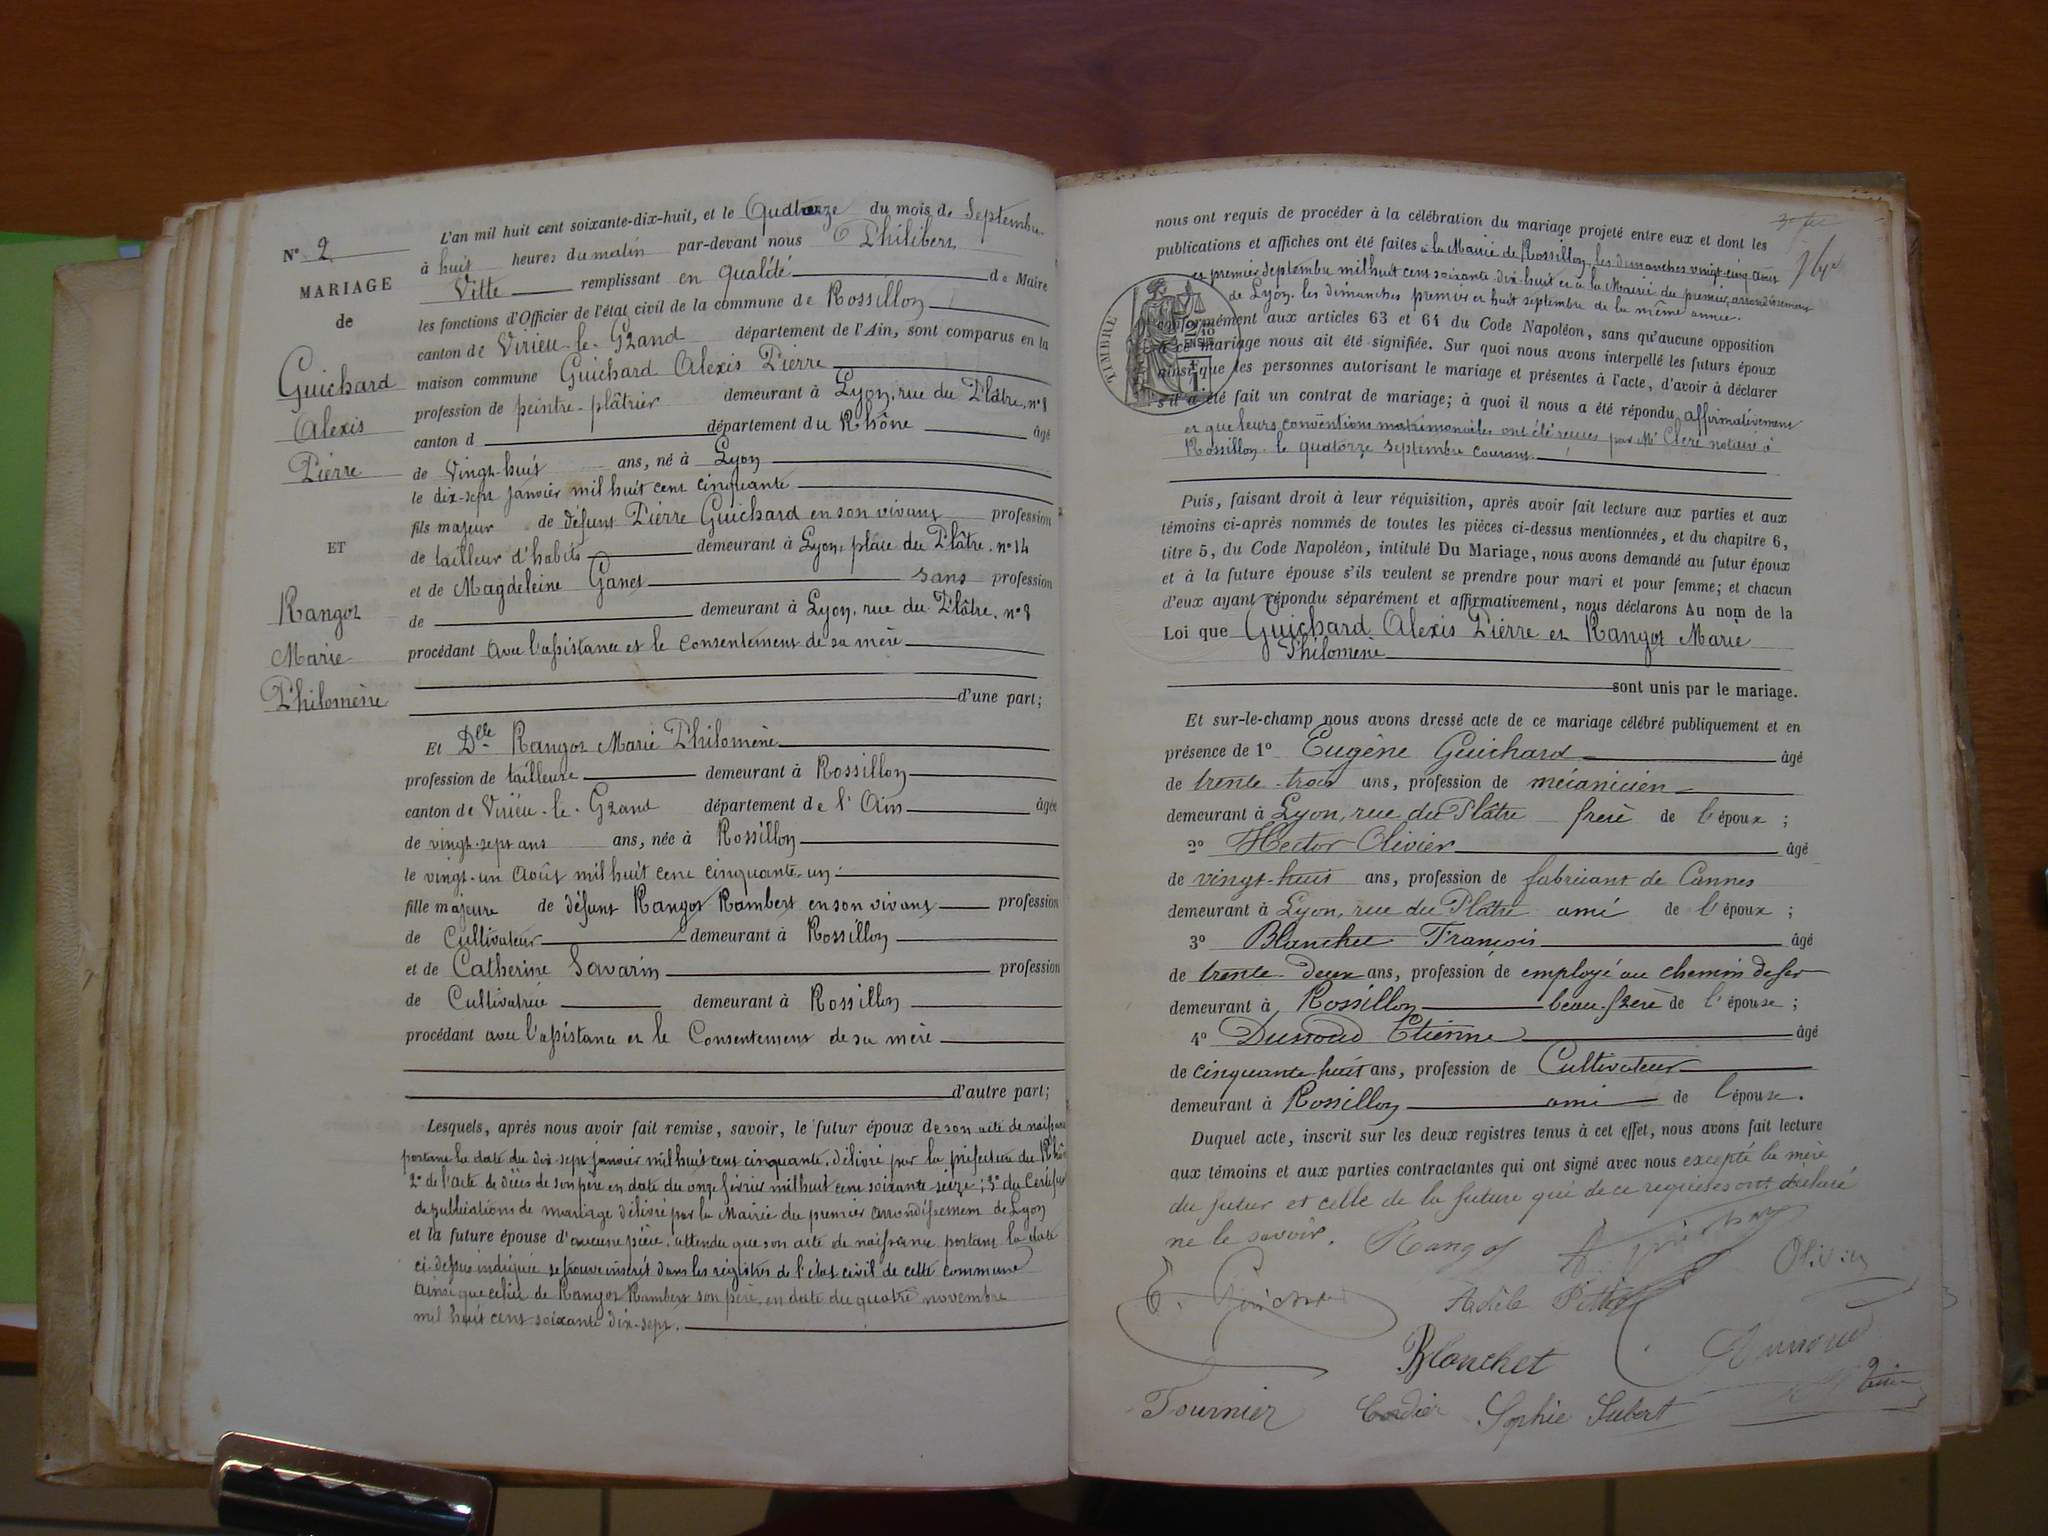 N° 2
MARIAGE
de
Guichard
Alexis
Pierre
ET
Rangot
Marie
Philomène
L'an mil huit cent soixante-dix-huit, et le Quatorze du mois de Septembre
à huit heures du matin par-devant nous Philibert
Vitte remplissant en qualité de Maire
les fonctions d'Officier de l'état civil de la commune de Rossillon
canton de Virieu-le-Grand département de l'Ain, sont comparus en la
maison commune Guichard Alexis Pierre
profession de peintre-plâtrier demeurant à Lyon, rue du Plâtre, n° 8
canton d département du Rhône âgé
de vingt-huit ans, né à Lyon
le dix-sept janvier mil huit cent cinquante
fils majeur de défunt Pierre Guichard en son vivant profession
de tailleur d'habits demeurant à Lyon, place du Plâtre, n° 14
et de Magdeleine Ganet sans profession
de demeurant à Lyon, rue du Plâtre, n° 8
procédant avec l'assistance et le consentement de sa mère
d'une part;
Et Delle Rangot Marie Philomène
profession de tailleuse demeurant à Rossillon
canton de Virieu-le-Grand département de l'Ain âgée
de vingt-sept ans ans, née à Rossillon
le vingt-un Août mil huit cent cinquante-un
fille majeure de défunt Rangot Rambert en son vivant profession
de Cultivateur demeurant à Rossillon
et de Catherine Savarin profession
de Cultivatrice demeurant à Rossillon
procédant avec l'assistance et le Consentement de sa mère
d'autre part;
Lesquels, après nous avoir fait remise, savoir, le futur époux de son acte de naissance
portant la date du dix-sept janvier mil huit cent cinquante, délivré par la préfecture du Rhône
2° de l'acte de décès de son père en date du onze février mil huit cent soixante seize; 3° du Certificat
de publications de mariage délivré par la Mairie du premier arrondissement de Lyon
et la future épouse d'aucune pièce, attendu que son acte de naissance portant la date
ci-dessus indiquée se trouve inséré dans les registres de l'état civil de cette commune
ainsi que celui de Rangot Rambert son père, en date du quatre novembre
mil huit cent soixante dix-sept.
nous ont requis de procéder à la célébration du mariage projeté entre eux et dont les
publications et affiches ont été faites à la Mairie de Rossillon, les dimanches vingt-cinq août
et premier septembre mil huit cent soixante-dix-huit et à la Mairie du premier arrondissement
de Lyon, les dimanches premier et huit septembre de la même année.
TIMBRE
conformément aux articles 63 et 64 du Code Napoléon, sans qu'aucune opposition
à ce mariage nous ait été signifiée. Sur quoi nous avons interpellé les futurs époux
ainsi que les personnes autorisant le mariage et présentes à l'acte, d'avoir à déclarer
s'il a été fait un contrat de mariage; à quoi il nous a été répondu affirmativement
et que leurs conventions matrimoniales ont été reçues par Me Clerc notaire à
Rossillon le quatorze septembre courant.
Puis, faisant droit à leur réquisition, après avoir fait lecture aux parties et aux
témoins ci-après nommés de toutes les pièces ci-dessus mentionnées, et du chapitre 6,
titre 5, du Code Napoléon, intitulé Du Mariage, nous avons demandé au futur époux
et à la future épouse s'ils veulent se prendre pour mari et pour femme; et chacun
d'eux ayant répondu séparément et affirmativement, nous déclarons Au nom de la
Loi que Guichard Alexis Pierre et Rangot Marie
Philomène
sont unis par le mariage.
Et sur-le-champ nous avons dressé acte de ce mariage célébré publiquement et en
présence de 1° Eugène Guichard âgé
de trente-trois ans, profession de mécanicien
demeurant à Lyon, rue du Plâtre frère de l'époux;
2° Hector Olivier âgé
de vingt-huit ans, profession de fabricant de Cannes
demeurant à Lyon, rue du Plâtre ami de l'époux;
3° Blanchet François âgé
de trente-deux ans, profession de employé au chemin de fer
demeurant à Rossillon beau-frère de l'épouse;
4° Dunoud Etienne âgé
de cinquante-huit ans, profession de Cultivateur
demeurant à Rossillon ami de l'épouse.
Duquel acte, inscrit sur les deux registres tenus à cet effet, nous avons fait lecture
aux témoins et aux parties contractantes qui ont signé avec nous excepté la mère
du futur et celle de la future qui de ce requises ont déclaré
ne le savoir.
Rangot
Olivier
E. Guichard
Adèle
Blanchet
Tournier
Cordier
Sophie Jubert